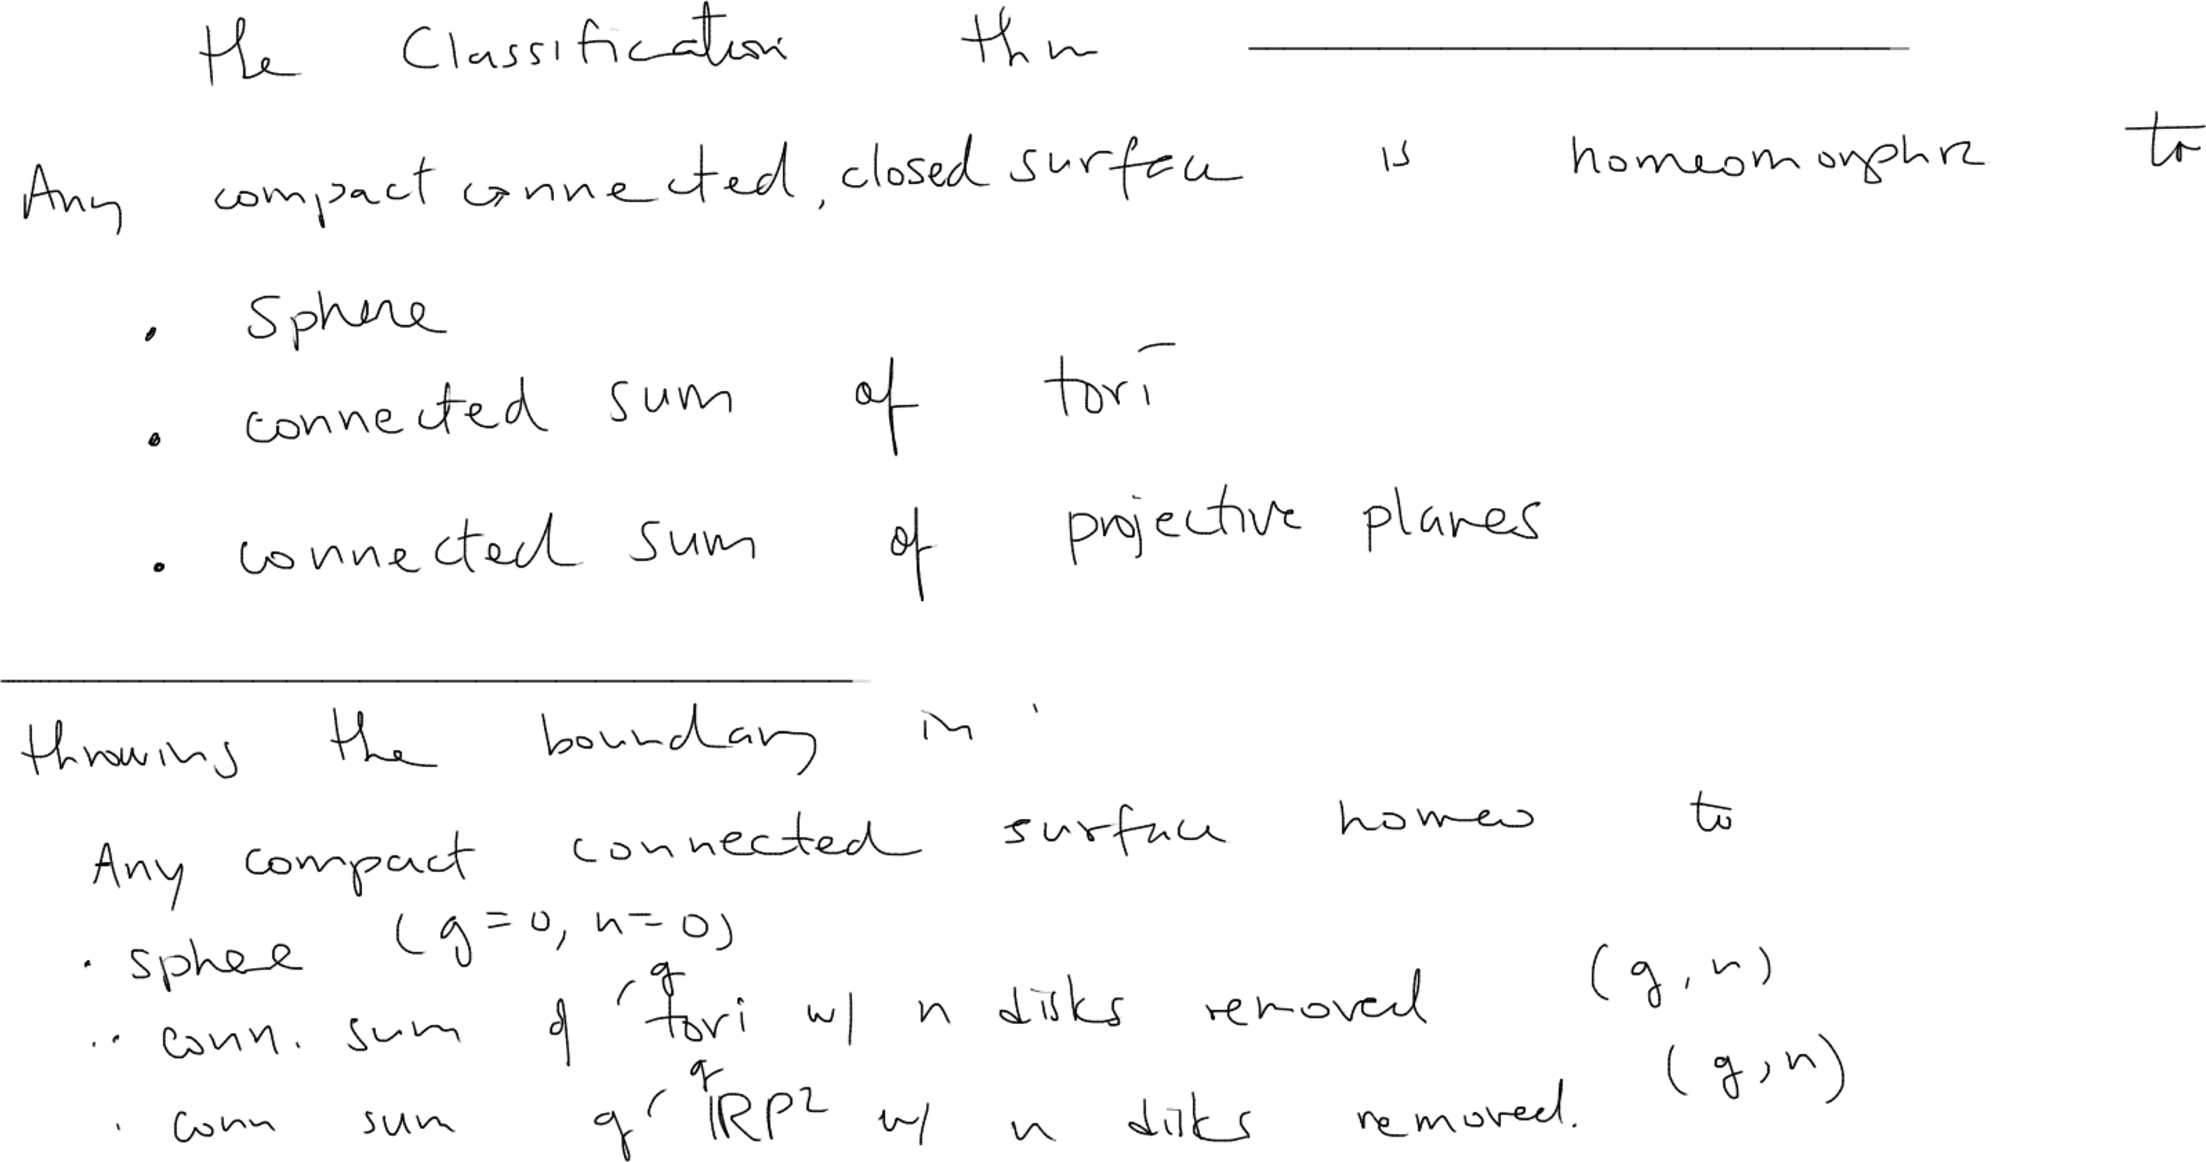 the Classification thm
Any compact connected, closed surface is homeomorphic to
• Sphere
• connected sum of tori
• connected sum of projective planes
throwing the boundary in:
Any compact connected surface homeo to
• sphere (g=0, n=0)
• conn. sum of g tori w/ n disks removed (g, n)
• conn sum of g RP² w/ n disks removed. (g, n)